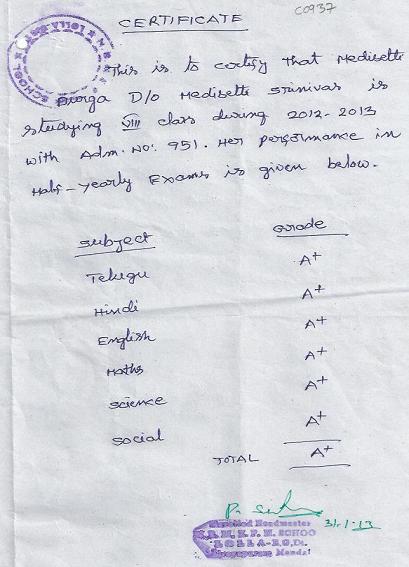 C0937
CERTIFICATE
This is to certify that Medisetti
Durga D/o Medisetti Srinivas is
studying VIII class during 2012-2013
with Adm. No: 951. Her performance in
Half-yearly Exams is given below.
Subject Grade
Telugu A+
Hindi A+
English A+
Maths A+
Science A+
Social A+
TOTAL A+
31-1-13
Headmaster
LOLLA-E.G.Dt.
Mandal